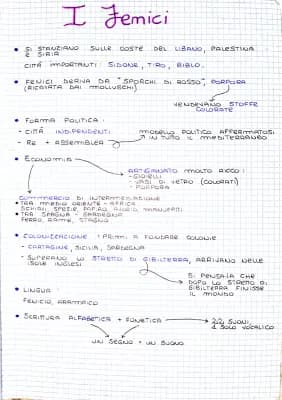 I Fenici
• SI STANZIANO SULLE COSTE DEL LIBANO, PALESTINA
E SIRIA
CITTÀ IMPORTANTI: SIDONE, TIRO, BIBLO.
• FENICI DERIVA DA "SPORCHI DI ROSSO", PORPORA
(RICAVATA DAI MOLLUSCHI)
VENDEVANO STOFFE
COLORATE
• FORMA POLITICA:
- CITTÀ INDIPENDENTI
- RE + ASSEMBLEA
MODELLO POLITICO AFFERMATOSI
IN TUTTO IL MEDITERRANEO
• ECONOMIA
ARTIGIANATO MOLTO RICCO:
- GIOIELLI
- VASI DI VETRO (COLORATI)
- PORPORA
COMMERCIO DI INTERMEDIAZIONE
• TRA MEDIO ORIENTE - AFRICA
SCHIAVI, SPEZIE, PAPIRO, AVORIO, MANUFATTI
• TRA SPAGNA - SARDEGNA
FERRO, RAME, STAGNO
• COLONIZZAZIONE: PRIMI A FONDARE COLONIE
- CARTAGINE, SICILIA, SARDEGNA
- SUPERANO LO STRETTO DI GIBILTERRA, ARRIVANO NELLE
ISOLE INGLESI
SI PENSAVA CHE
DOPO LO STRETTO DI
GIBILTERRA FINISSE
IL MONDO
• LINGUA:
FENICIO, ARAMAICO
• SCRITTURA ALFABETICA + FONETICA
22 SUONI,
1 SOLO VOCALICO
UN SEGNO + UN SUONO